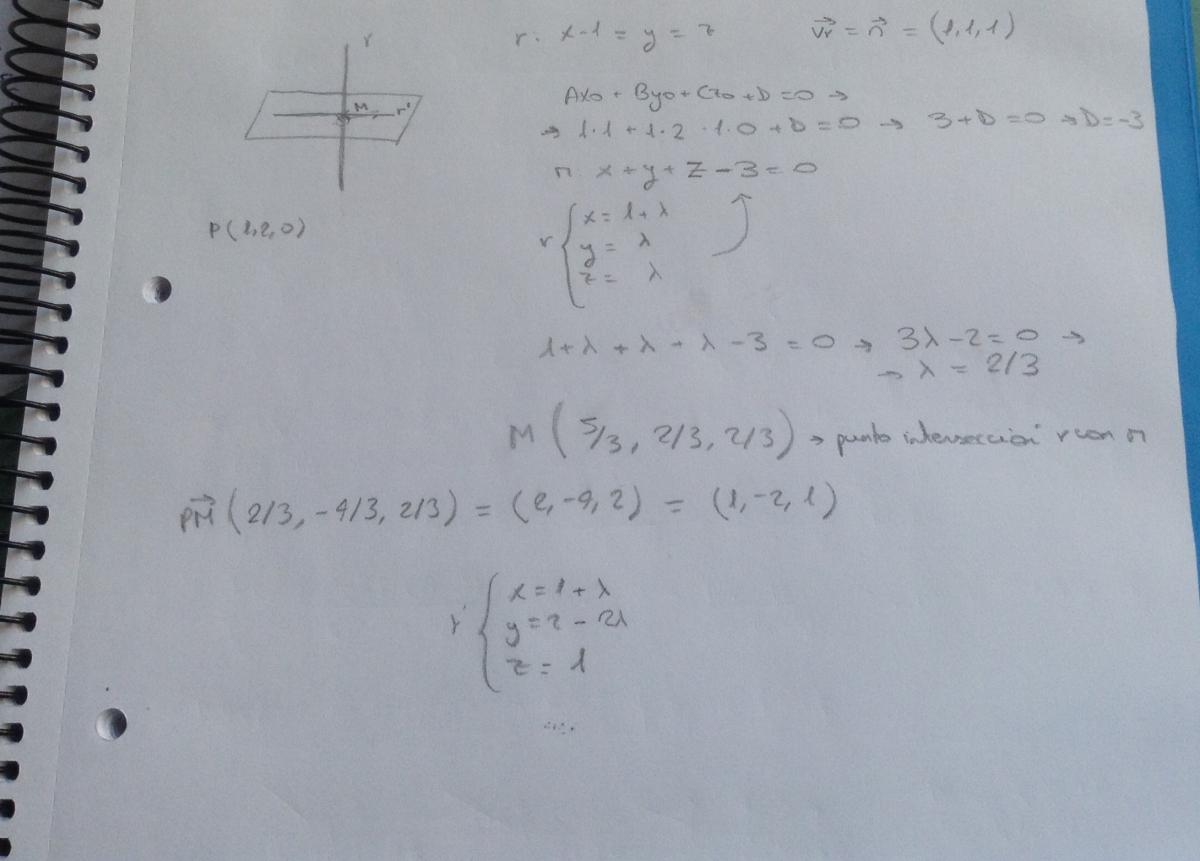 r
M
r'
P(1,2,0)
r: x-1 = y = z
vr⃗ = n⃗ = (1,1,1)
Ax0 + By0 + Cz0 + D = 0 →
→ 1·1 + 1·2 · 1·0 + D = 0 → 3 + D = 0 → D = -3
π: x + y + z - 3 = 0
r { x = 1 + λ
y = λ
z = λ
1 + λ + λ + λ - 3 = 0 → 3λ - 2 = 0 →
→ λ = 2/3
M (5/3, 2/3, 2/3) → punto intersección r con π
PM⃗ (2/3, -4/3, 2/3) = (2, -4, 2) = (1, -2, 1)
r' { x = 1 + λ
y = 2 - 2λ
z = λ
....